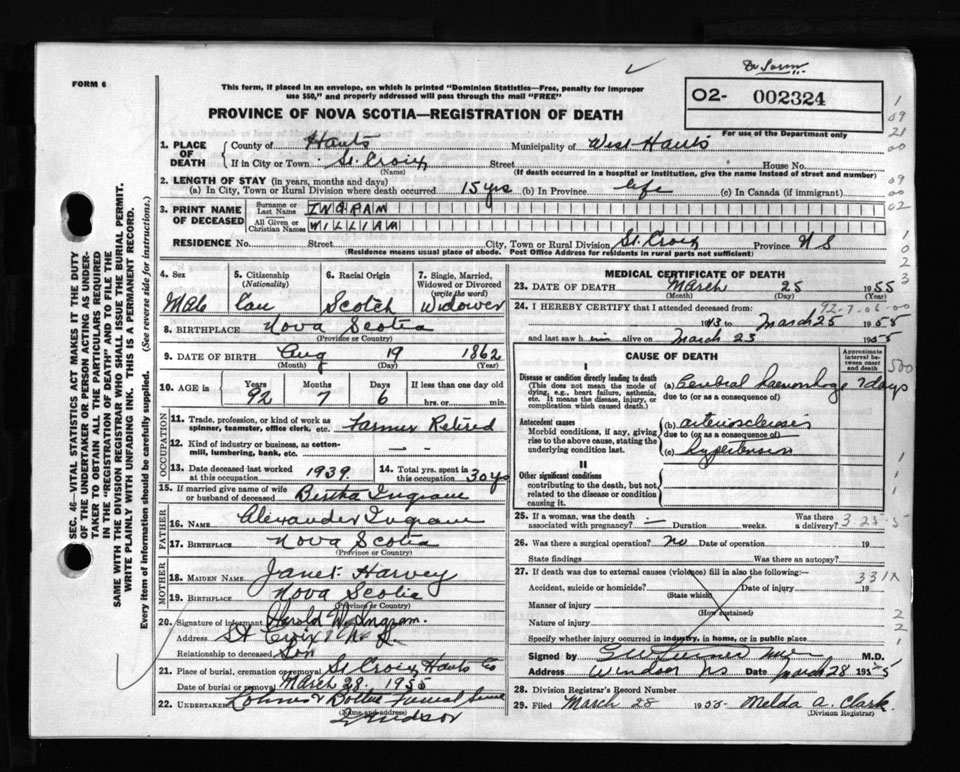 FORM 6
This form, if placed in an envelope, on which is printed "Dominion Statistics—Free, penalty for improper
use $50," and properly addressed will pass through the mail "FREE"
02- 002324
PROVINCE OF NOVA SCOTIA—REGISTRATION OF DEATH
For use of the Department only
1. PLACE OF DEATH County of Hants Municipality of West Hants
If in City or Town St. Croix Street House No.
(Name) (If death occurred in a hospital or institution, give the name instead of street and number)
2. LENGTH OF STAY (in years, months and days)
(a) In City, Town or Rural Division where death occurred 15 yrs (b) In Province life (c) In Canada (if immigrant)
3. PRINT NAME OF DECEASED Surname or Last Name INGRAM
All Given or Christian Names WILLIAM
RESIDENCE No. Street City, Town or Rural Division St. Croix Province N S
(Residence means usual place of abode. Post Office Address for residents in rural parts not sufficient)
4. Sex 5. Citizenship (Nationality) 6. Racial Origin 7. Single, Married, Widowed or Divorced (write the word)
Male Can Scotch Widower
8. BIRTHPLACE Nova Scotia
(Province or Country)
9. DATE OF BIRTH Aug 19 1862
(Month) (Day) (Year)
10. AGE in Years Months Days If less than one day old
92 7 6 hrs. or min.
OCCUPATION
11. Trade, profession or kind of work as spinner, teamster, office clerk, etc. Farmer Retired
12. Kind of industry or business, as cotton-mill, lumbering, bank, etc. — —
13. Date deceased last worked at this occupation 1939 14. Total yrs. spent in this occupation 30 yrs
15. If married give name of wife or husband of deceased Bertha Ingram
FATHER
16. NAME Alexander Ingram
17. BIRTHPLACE Nova Scotia
(Province or Country)
MOTHER
18. MAIDEN NAME Janet Harvey
19. BIRTHPLACE Nova Scotia
(Province or Country)
20. Signature of informant Harold W. Ingram.
Address St Croix N. S.
Relationship to deceased Son
21. Place of burial, cremation or removal St Croix Hants Co
Date of burial or removal March 28. 1955
22. UNDERTAKER Funeral
(Name and address)
Windsor
MEDICAL CERTIFICATE OF DEATH
23. DATE OF DEATH March 25 1955
(Month) (Day) (Year)
24. I HEREBY CERTIFY that I attended deceased from 92-7-06-00
1943 to March 25 1955
and last saw him alive on March 23 1955
CAUSE OF DEATH
Approximate interval between onset and death
I
Disease or condition directly leading to death
(This does not mean the mode of dying, e.g., heart failure, asthenia, etc. It means the disease, injury, or complication which caused death.)
(a) Cerebral haemorrhage 7 days
due to (or as a consequence of)
Antecedent causes
Morbid conditions, if any, giving rise to the above cause, stating the underlying condition last.
(b) arteriosclerosis
due to (or as a consequence of)
(c) hypertension
II
Other significant conditions
contributing to the death, but not related to the disease or condition causing it.
25. If a woman, was the death associated with pregnancy? — Duration weeks. Was there a delivery? 3 25-5
26. Was there a surgical operation? no Date of operation 19
State findings Was there an autopsy?
27. If death was due to external causes (violence) fill in also the following:—
331X
Accident, suicide or homicide? Date of injury 19
(State which)
Manner of injury
(How sustained)
Nature of injury
Specify whether injury occurred in industry, in home, or in public place
Signed by M.D.
Address Windsor NS Date March 28 1955
28. Division Registrar's Record Number
29. Filed March 28 1955 Melda A. Clark.
(Division Registrar)
SEC. 46—VITAL STATISTICS ACT MAKES IT THE DUTY
OF THE UNDERTAKER OR PERSON ACTING AS UNDER-
TAKER TO OBTAIN ALL THE PARTICULARS REQUIRED
IN THE "REGISTRATION OF DEATH" AND TO FILE THE
SAME WITH THE DIVISION REGISTRAR WHO SHALL ISSUE THE BURIAL PERMIT.
WRITE PLAINLY WITH UNFADING INK. THIS IS A PERMANENT RECORD.
Every item of information should be carefully supplied. (See reverse side for instructions.)
1
09
21
00
09
00
02
1
0
2
3
500
1
1
1
2
2
1